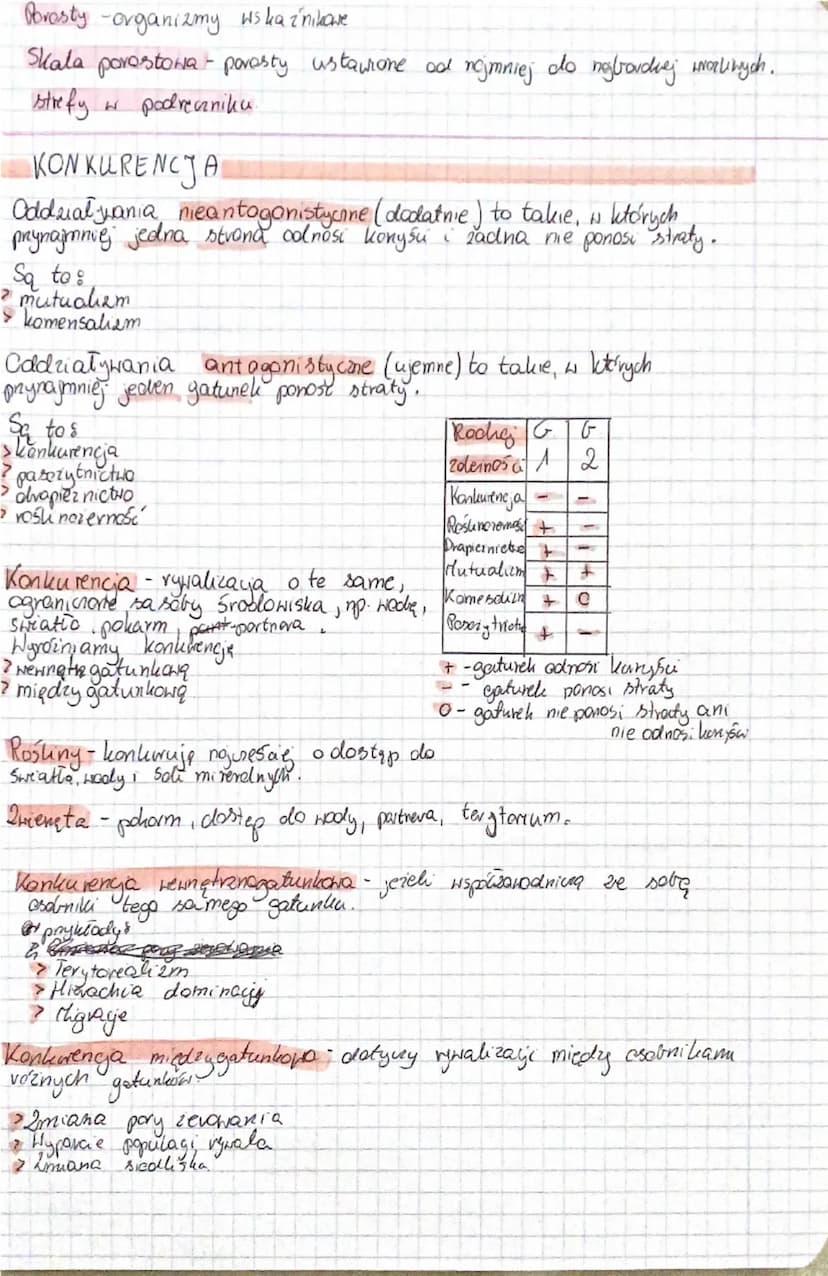 Porosty - organizmy wskaźnikowe
Skala porostowa - porosty ustawione od najmniej do najbardziej wrażliwych.
strefy w podręczniku
KONKURENCJA
Oddziaływania nieantagonistyczne (dodatnie) to takie, w których
przynajmniej jedna strona odnosi korzyści i żadna nie ponosi straty.
Są to:
> mutualizm
> komensalizm
Oddziaływania antagonistyczne (ujemne) to takie, w których
przynajmniej jeden gatunek ponosi straty.
Są to:
> konkurencja
> pasożytnictwo
> drapieżnictwo
> roślinożerność
Rodzaj G G
zależności 1 2
Konkurencja - -
Roślinożerność + -
Drapieżnictwo + -
Mutualizm + +
Komensalizm + 0
Pasożytnictwo + -
+ - gatunek odnosi korzyści
- - gatunek ponosi straty
0 - gatunek nie ponosi straty ani
nie odnosi korzyści
Konkurencja - rywalizacja o te same,
ograniczone zasoby środowiska, np. wodę,
światło, pokarm, partnera.
Wyróżniamy konkurencję
> wewnątrzgatunkową
> międzygatunkową
Rośliny - konkurują najczęściej o dostęp do
światła, wody i soli mineralnych.
Zwierzęta - pokarm, dostęp do wody, partnera, terytorium.
Konkurencja wewnętrznogatunkowa - jeżeli współzawodniczą ze sobą
osobniki tego samego gatunku.
przykłady:
> Terytorealizm
> Hierachia dominacji
> Migracje
Konkurencja międzygatunkowa - dotyczy rywalizacji między osobnikami
różnych gatunków.
> Zmiana pory żerowania
> Wyparcie populacji rywala
> Zmiana siedliska